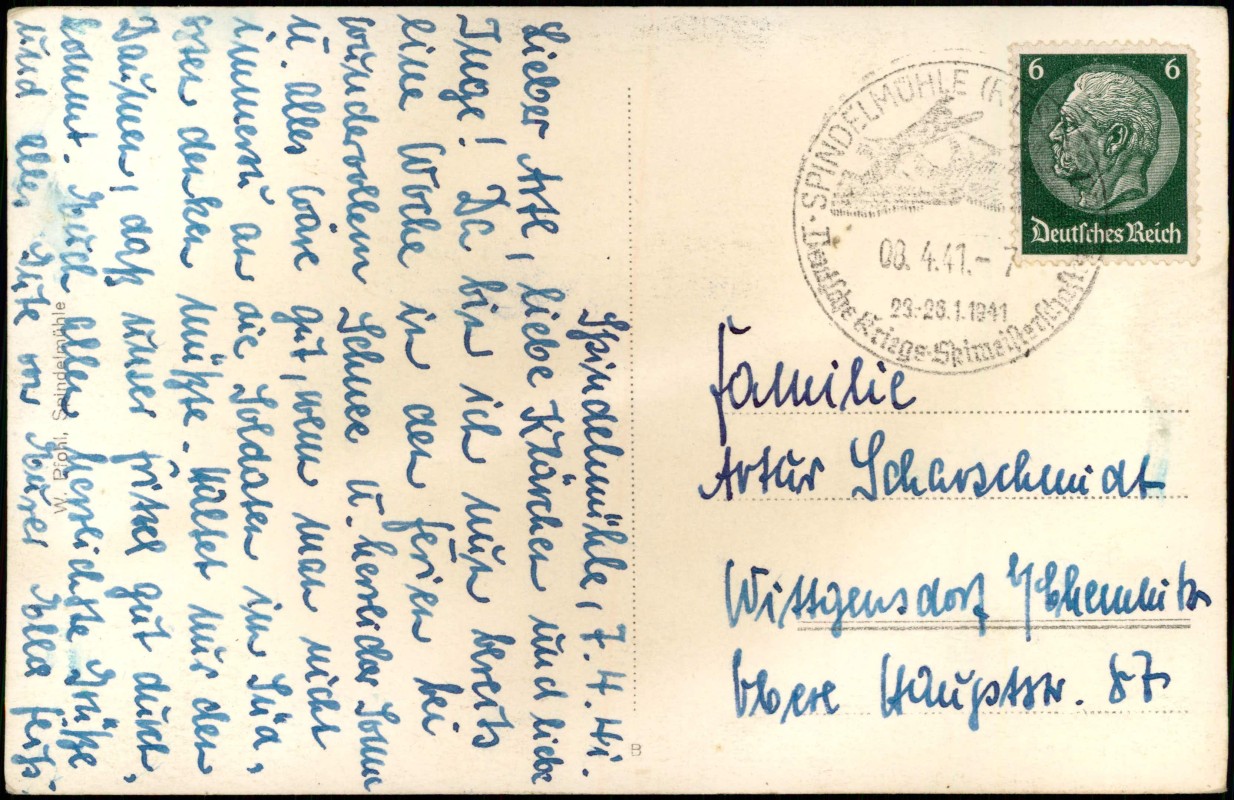 Spindelmühle, 7. 4. 41.
Lieber Artl, liebe Klärchen und liebe
Inge! Da bin ich nun bereits
eine Woche in den Ferien bei
wundervollem Schnee u. herrlicher Sonne
u. alles wäre gut, wenn man nicht
immerzu an die Soldaten im Süd-
osten denken müßte. Haltet nur den
Daumen, daß unser gut durch-
kommt. Euch allen herzlichste Grüße
und alles Gute von Eurer
W. Pfohl, Spindelmühle
B
SPINDELMÜHLE
08. 4.41.- 7
23.-28.1.1941
Deutsche Kriegs-Skimeisterschaft
6 6
Deutsches Reich
Familie
Artur Scharschmidt
Wittgensdorf b/Chemnitz
Obere Hauptstr. 87